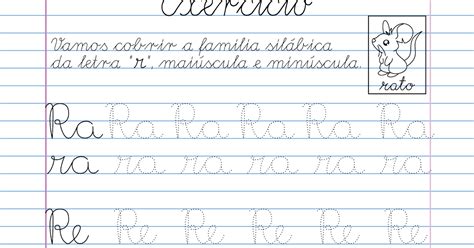 Exercício
Vamos cobrir a família silábica
da letra "r", maiúscula e minúscula.
rato
Ra Ra Ra Ra Ra Ra Ra
ra ra ra ra ra ra ra
Re Re Re Re Re Re Re